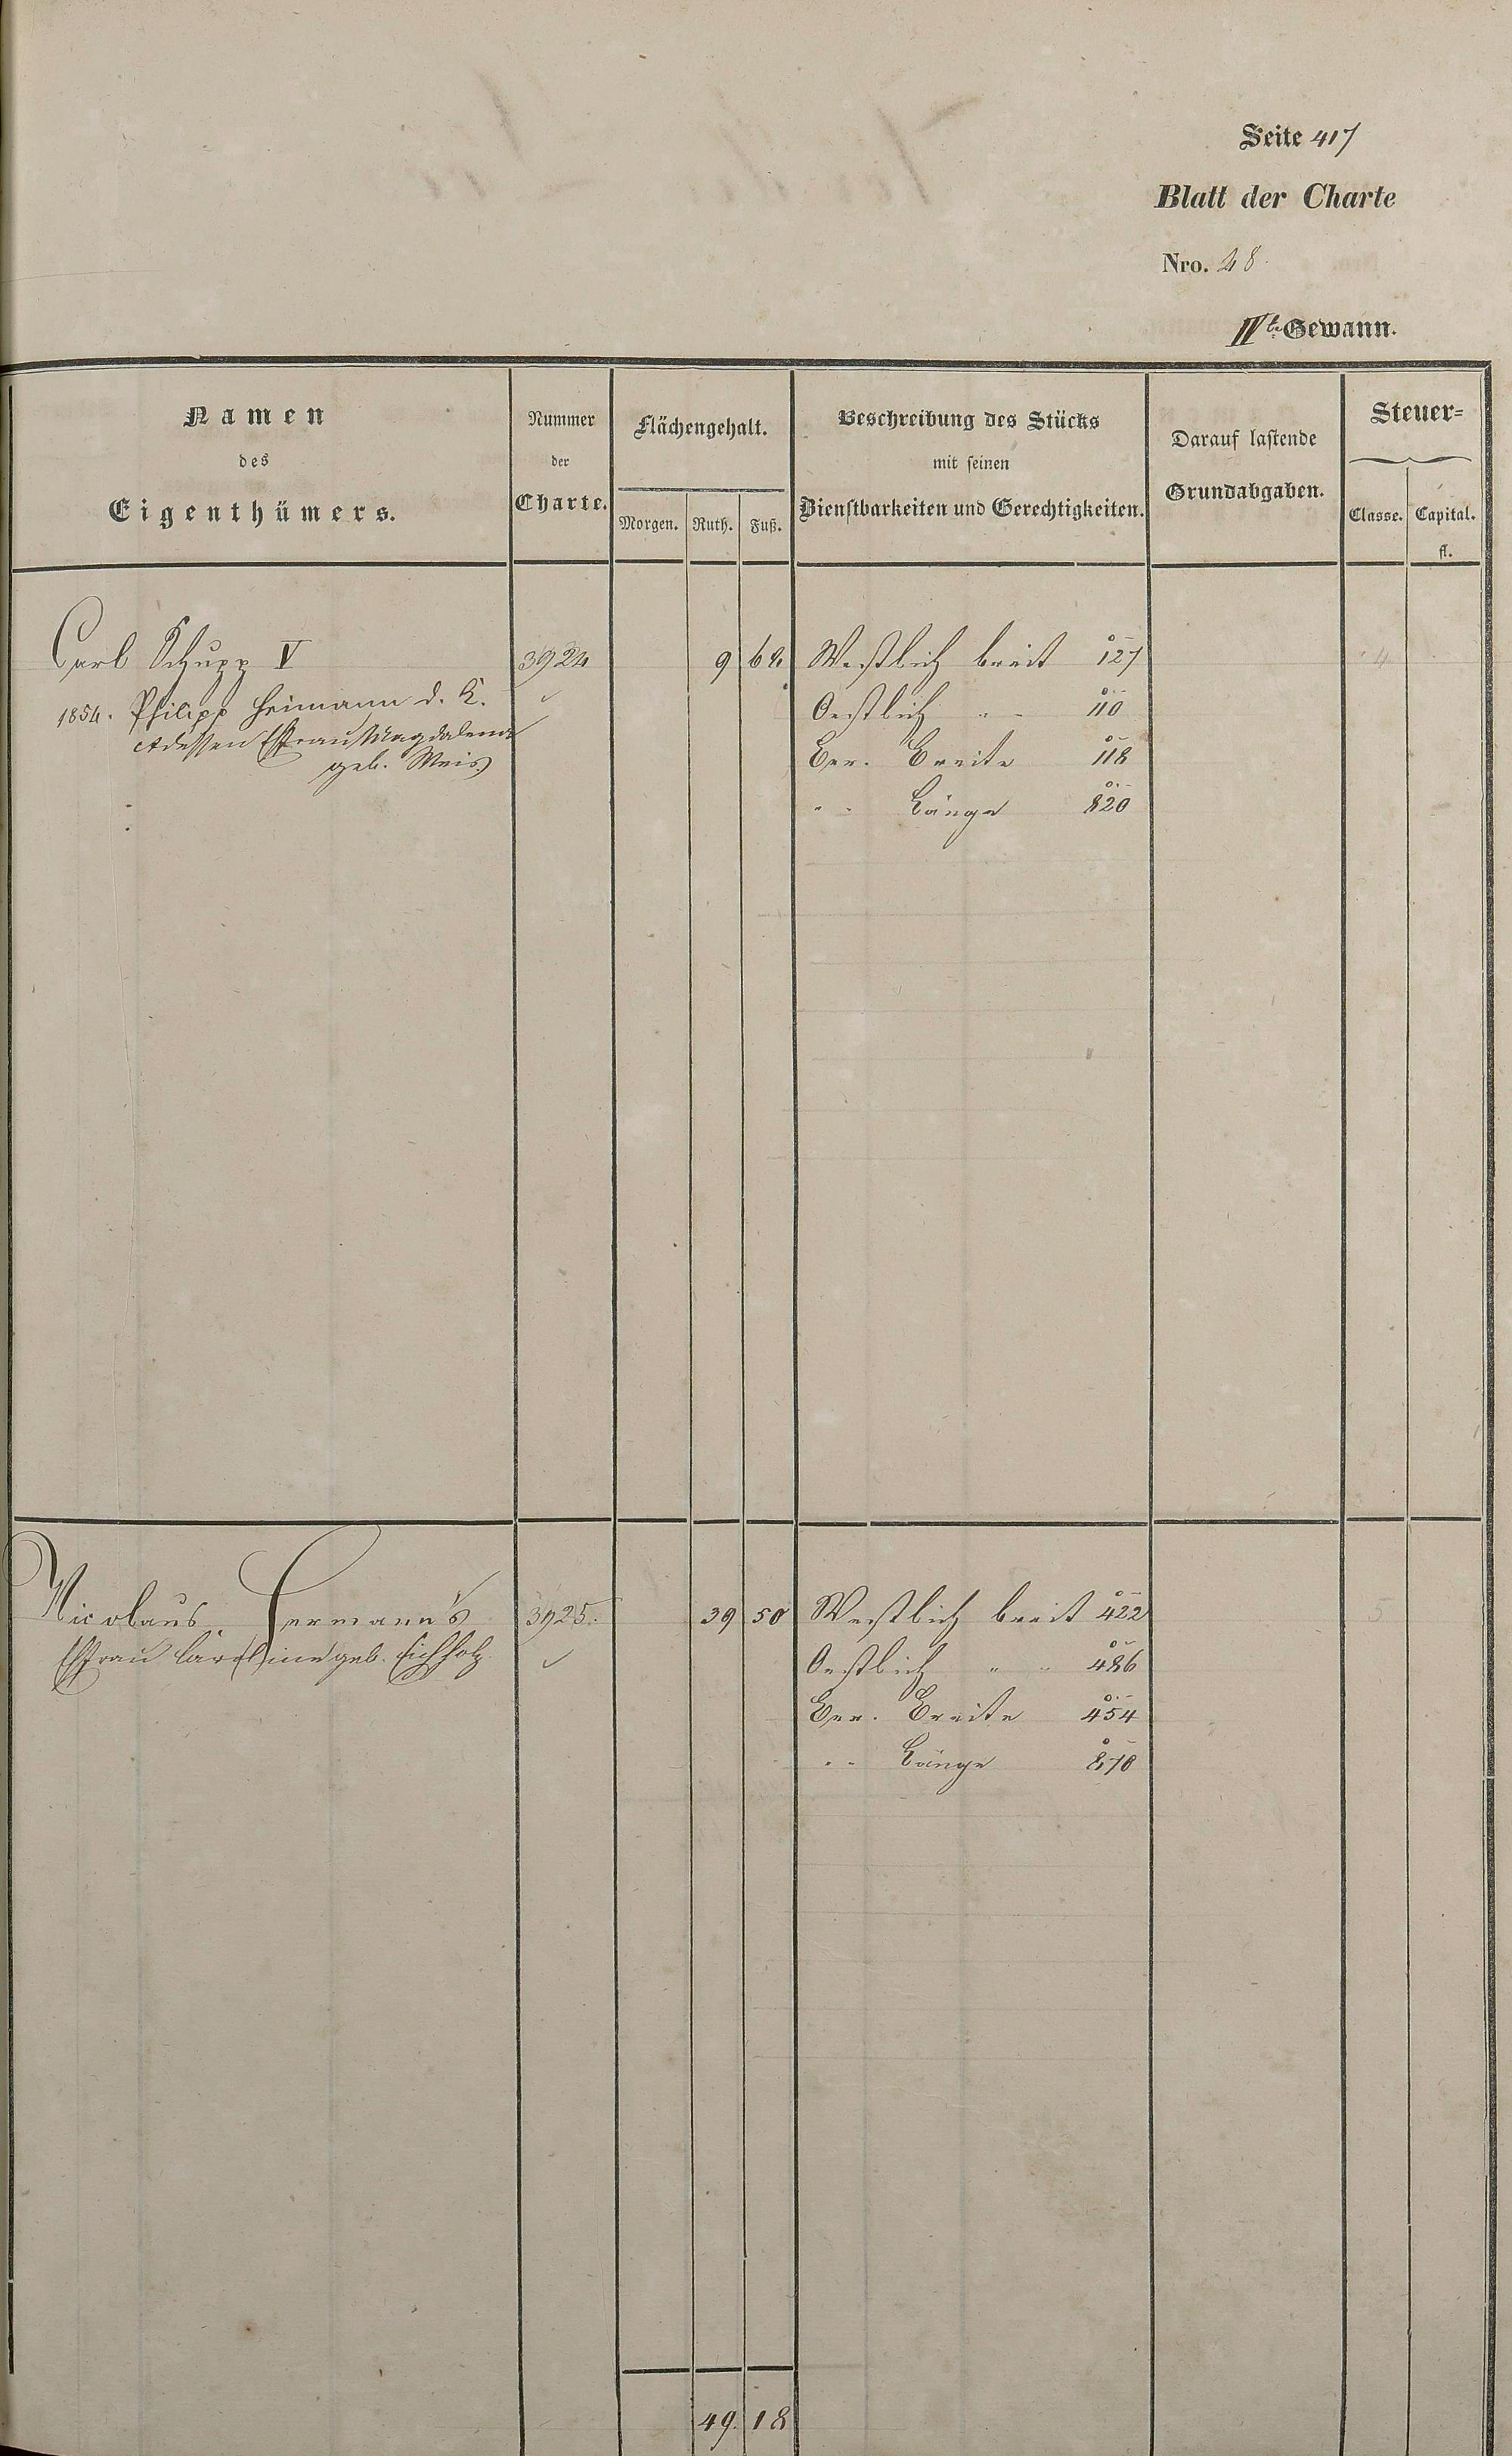 Seite 417
Blatt der Charte
Nro. 28.
IVte Gewann.
Namen des Eigenthümers.
Nummer der Charte.
Flächengehalt.
Morgen. Ruth. Fuß.
Beschreibung des Stücks mit seinen Dienstbarkeiten und Gerechtigkeiten.
Darauf lastende Grundabgaben.
Steuer-
Classe. Capital. fl.
Carl Schupp V 3924 9 68 Westlich breit 127 4
1854. Philipp Heimann d. K. Oestlich " - 110
dessen Ehfrau Magdalena Ver. Breite 118
geb. Weis) " - Länge 820
Nicolaus Hermann's 3925. 39 50 Westlich breit 422 5
Ehfrau Caroline geb. Eichholz Oestlich " " 486
Ver. Breite 454
" - Länge 870
49. 18